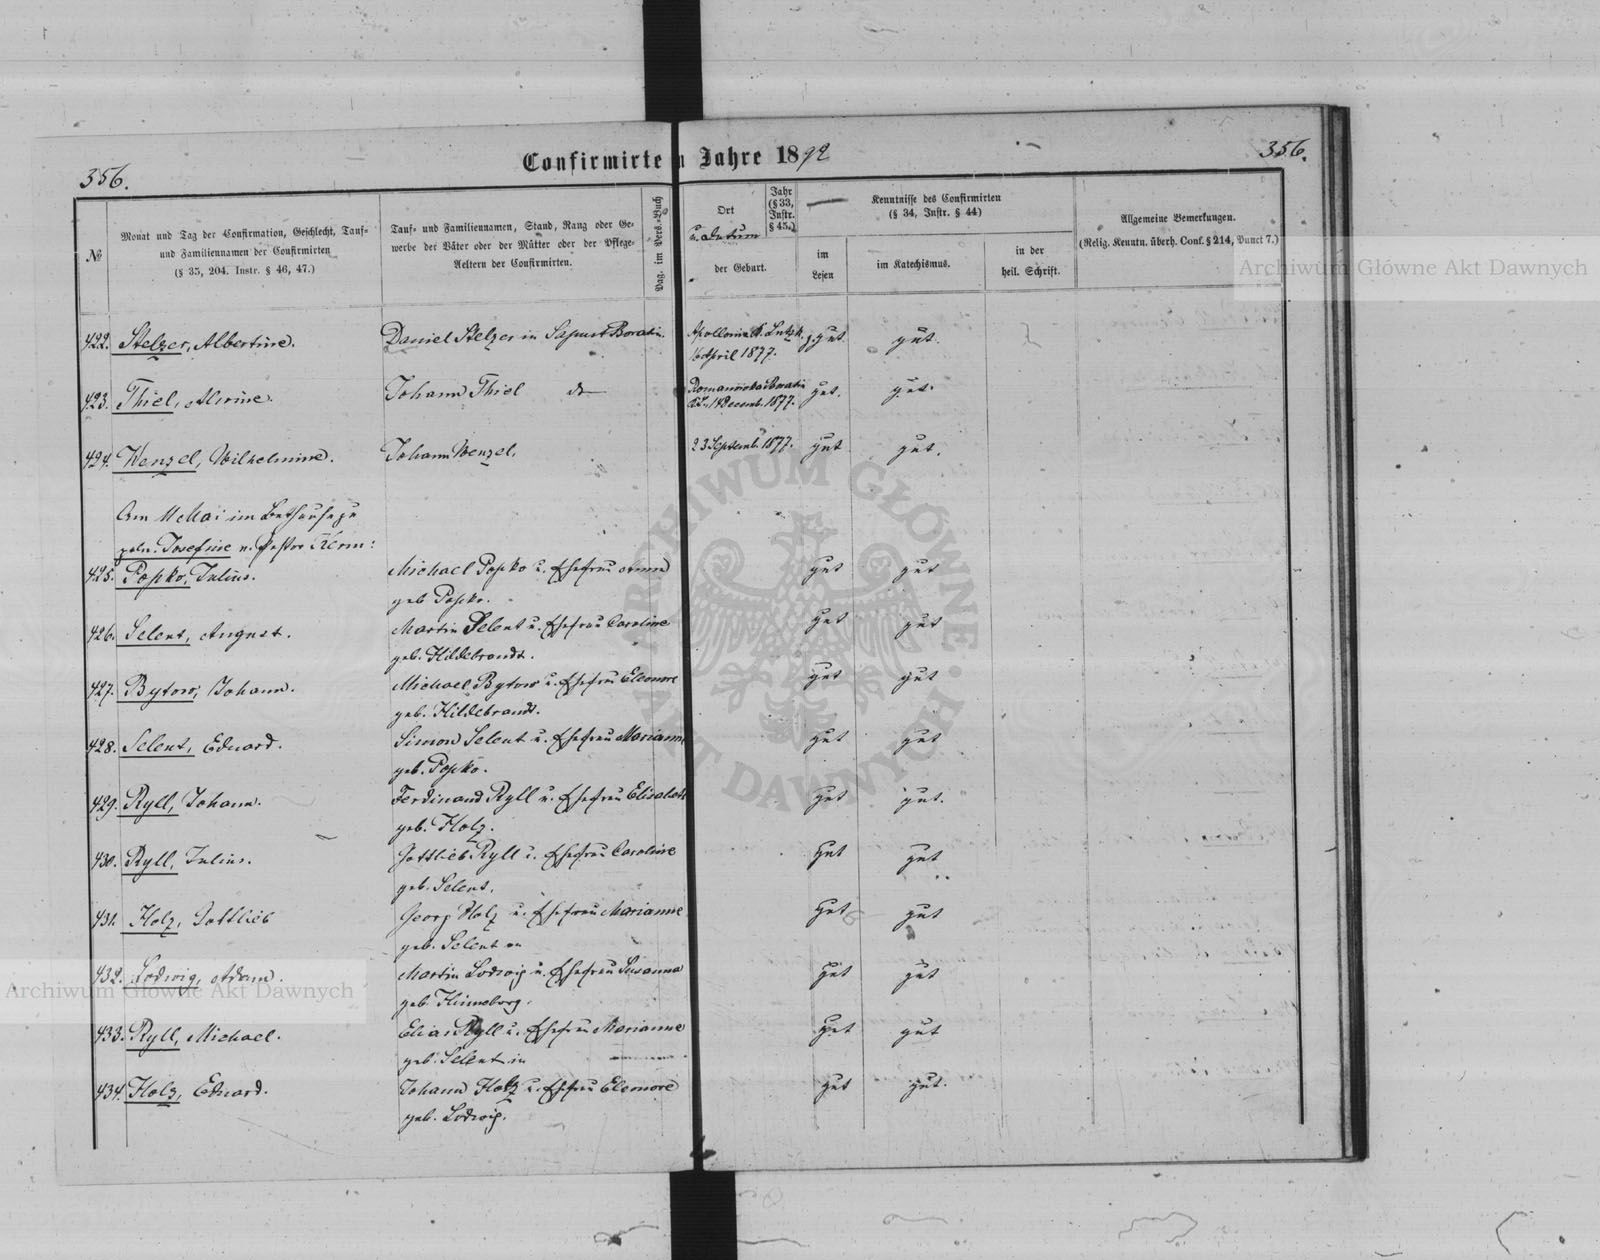 356.
Confirmirte n Jahre 1892
356.
№
Monat und Tag der Confirmation, Geschlecht, Tauf-
und Familiennamen der Confirmirten
(§ 35, 204. Instr. § 46, 47.)
Tauf- und Familiennamen, Stand, Rang oder Ge-
werbe der Väter oder der Mütter oder der Pflege-
Aeltern der Confirmirten.
Pag. im Pers.-Buch
Ort
u. Datum
der Geburt.
Jahr
(§ 33,
Instr.
§ 45.)
Kenntnisse des Confirmirten
(§ 34, Instr. § 44)
im
Lesen
im Katechismus.
in der
heil. Schrift.
Allgemeine Bemerkungen.
(Relig. Kenntn. überh. Conf. § 214, Punct 7.)
422. Stelzer, Albertine. Daniel Stelzer in Boratin. Apollonia Lutzk gut gut.
16 April 1877.
423. Thiel, Alwine. Johann Thiel gut. gut.
Decemb. 1877.
424. Wenzel, Wilhelmine. Johann Wenzel. 23 Septemb. 1877. gut gut.
Am 11 Mai im Bethause zu
Josefine v. Pastor Kern:
425. Popko, Julius. Michael Popko u. Ehefrau Anna gut gut
geb. Popko.
426. Selent, August. Martin Selent u. Ehefrau Caroline gut gut
geb. Hildebrandt.
427. Bytow, Johann. Michael Bytow u. Ehefrau Eleonore gut gut
geb. Hildebrandt.
428. Selent, Eduard. Simon Selent u. Ehefrau Marianne gut gut
geb. Popko.
429. Ryll, Johann. Ferdinand Ryll u. Ehefrau Elisabeth gut gut.
geb. Holz.
430. Ryll, Julius. Gottlieb Ryll u. Ehefrau Caroline gut gut
geb. Selent.
431. Holz, Gottlieb Georg Holz u. Ehefrau Marianne gut gut
geb. Selent
432. Lodwig, Adam. Martin Lodwig u. Ehefrau Susanna gut gut
geb. Hinneborg.
433. Ryll, Michael. Elias Ryll u. Ehefrau Marianne gut gut
geb. Selent in
434. Holz, Eduard. Johann Holz u. Ehefrau Eleonore gut gut.
geb. Lodwig.
Archiwum Główne Akt Dawnych
Archiwum Główne Akt Dawnych
ARCHIWUM GŁÓWNE · AKT DAWNYCH ·